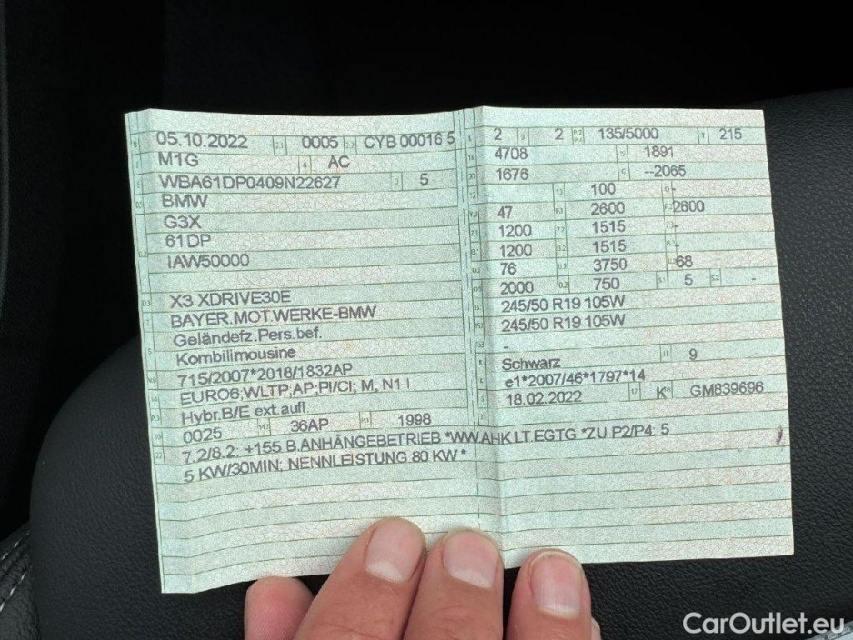 05.10.2022 0005 CYB 00016 5
M1G AC
WBA61DP0409N22627 5
BMW
G3X
61DP
IAW50000
X3 XDRIVE30E
BAYER.MOT.WERKE-BMW
Geländefz.Pers.bef.
Kombilimousine
715/2007*2018/1832AP
EURO6;WLTP;AP;PI/CI; M, N1 I
Hybr.B/E ext.aufl
0025 36AP 1998
7.2/8.2: +155 B.ANHÄNGEBETRIEB *WW.AHK LT.EGTG *ZU P2/P4: 5
5 KW/30MIN; NENNLEISTUNG 80 KW *
2 2 135/5000 215
4708 1891
1676 --2065
100 -
47 2600 2600
1200 1515 -
1200 1515 -
76 3750 68
2000 750 5 -
245/50 R19 105W
245/50 R19 105W
-
Schwarz 9
e1*2007/46*1797*14
18.02.2022 K GM839696
CarOutlet.eu